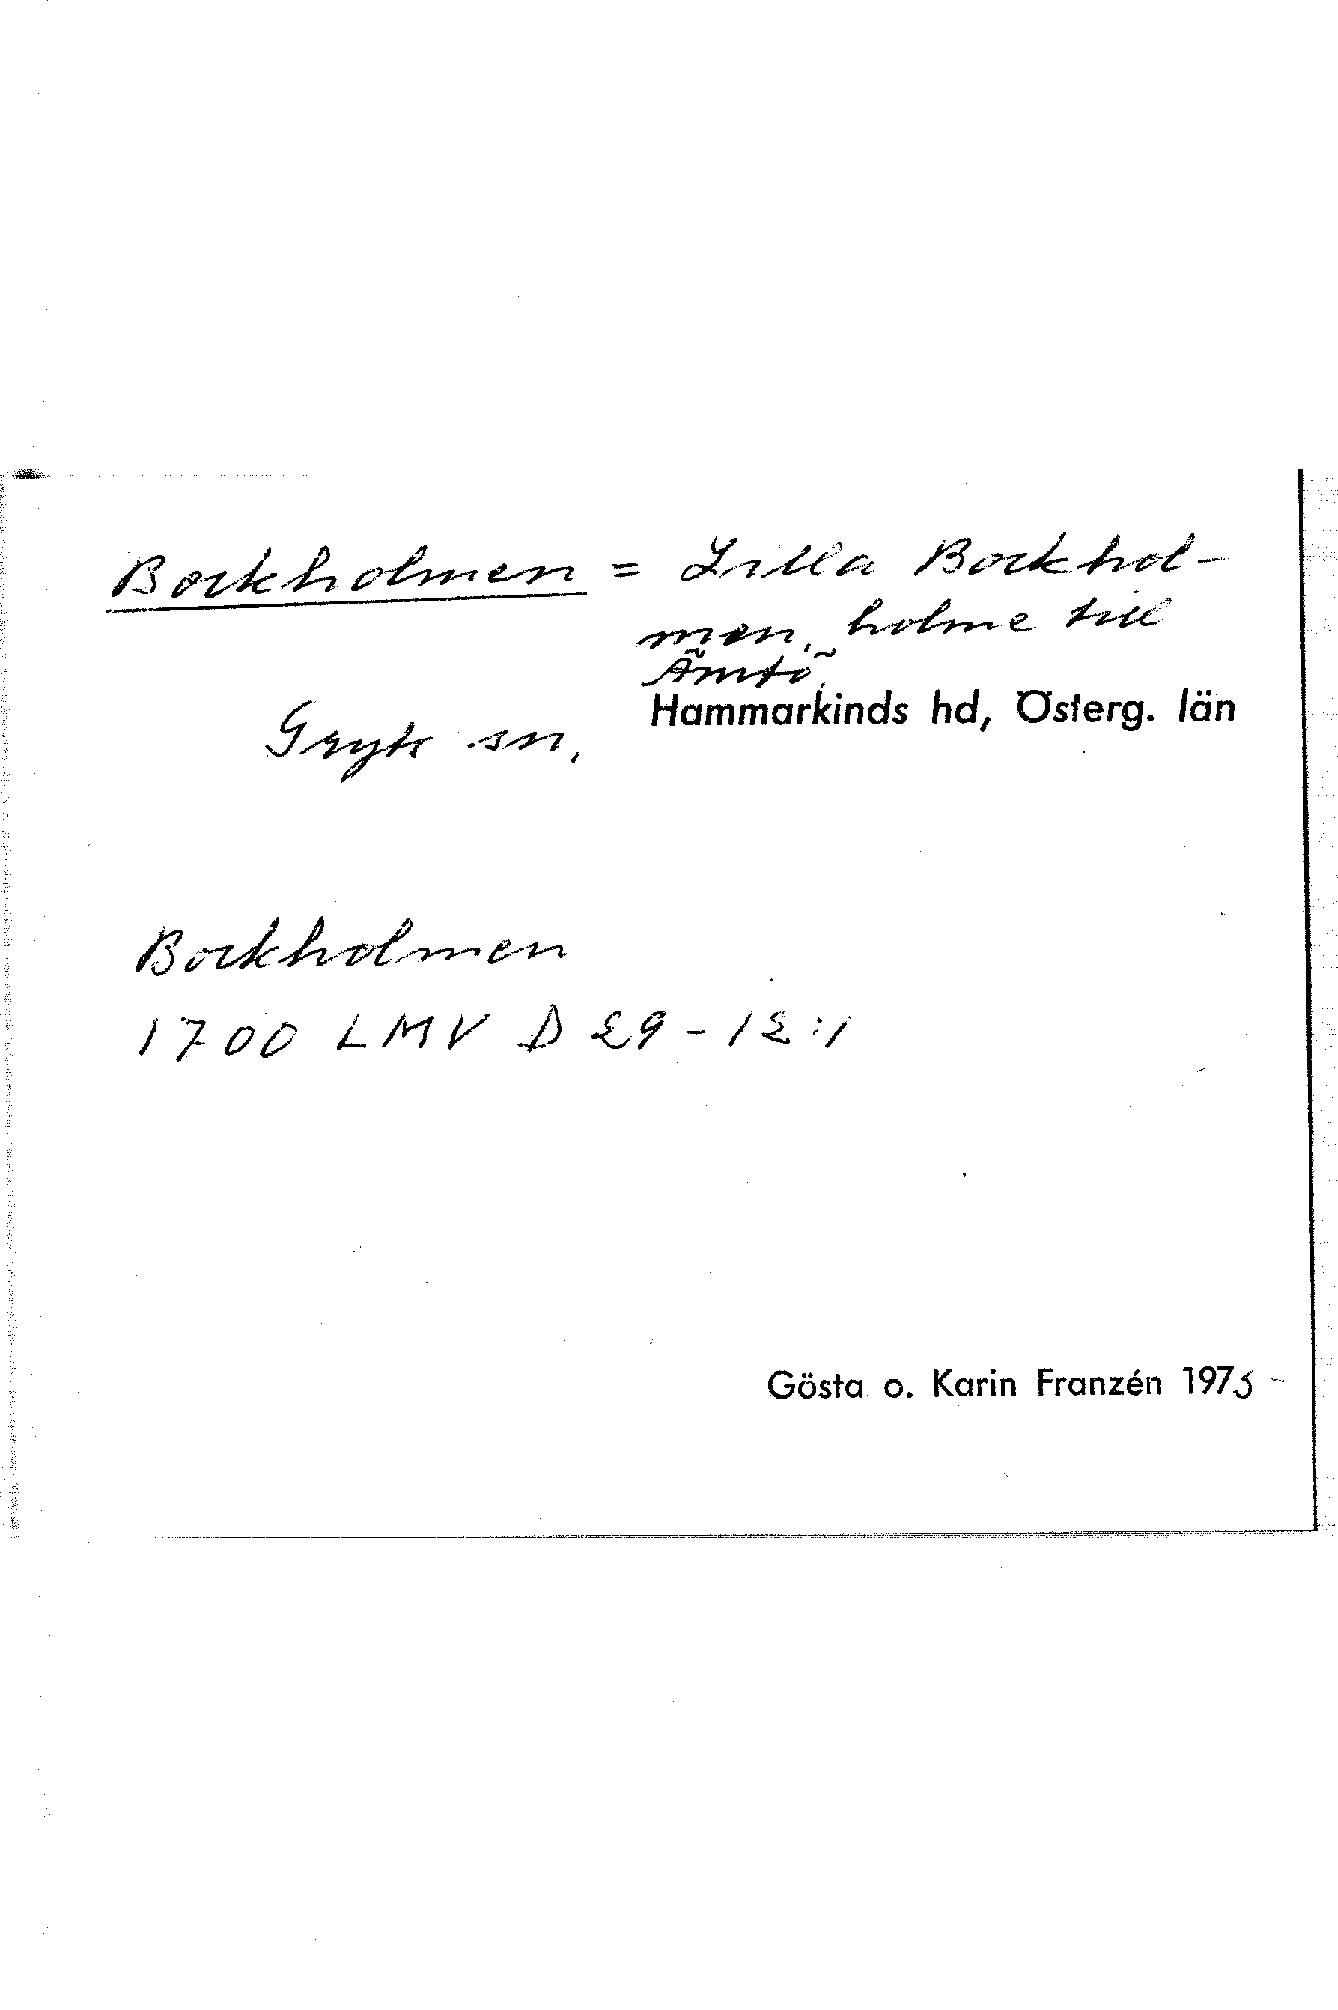 Bockholmen = Lilla Bockhol-
men, holme till
Ämtö.
Gryts sn, Hammarkinds hd, Österg. län
Bockholmen
1700 LMV D 29-12:1
Gösta o. Karin Franzén 1975